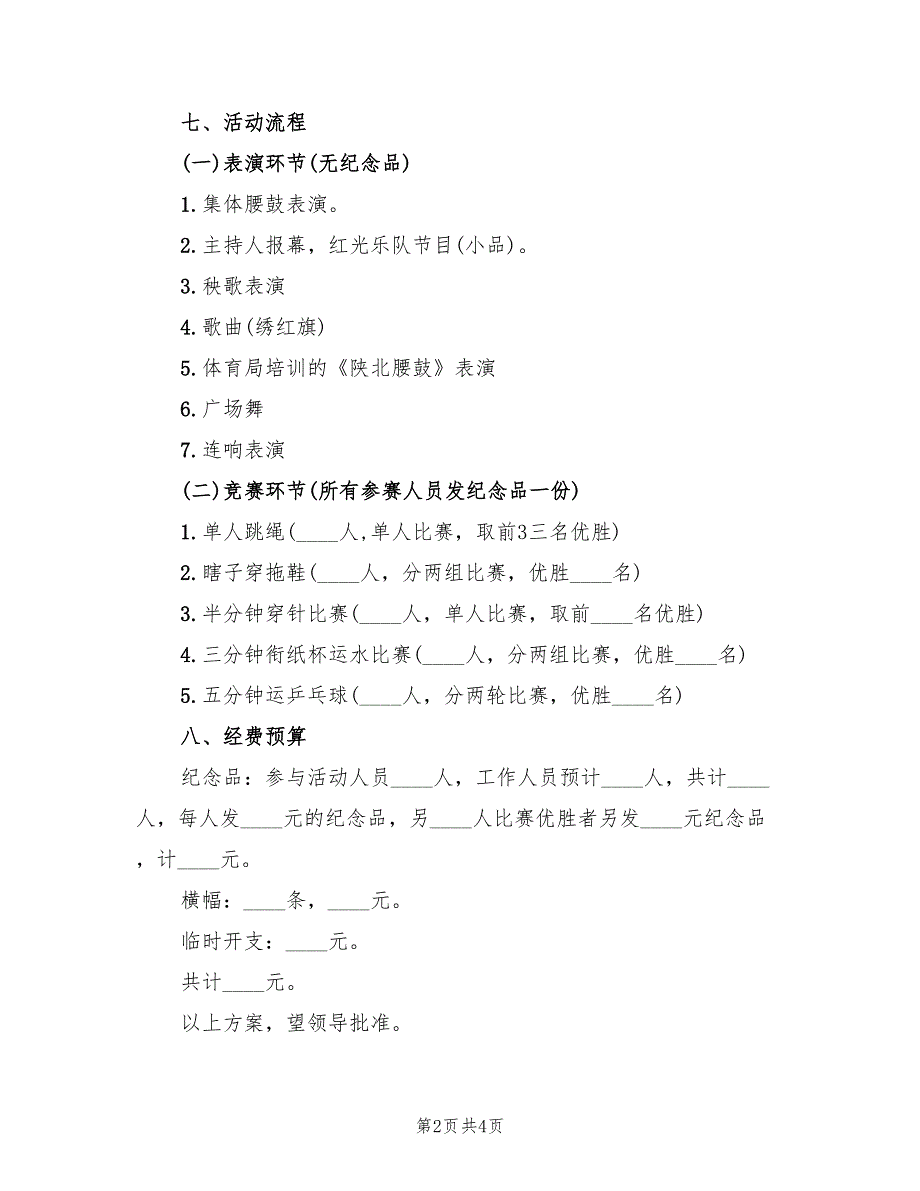 七、活动流程
(一)表演环节(无纪念品)
1.集体腰鼓表演。
2.主持人报幕，红光乐队节目(小品)。
3.秧歌表演
4.歌曲(绣红旗)
5.体育局培训的《陕北腰鼓》表演
6.广场舞
7.连响表演
(二)竞赛环节(所有参赛人员发纪念品一份)
1.单人跳绳(____人,单人比赛，取前3三名优胜)
2.瞎子穿拖鞋(____人，分两组比赛，优胜____名)
3.半分钟穿针比赛(____人，单人比赛，取前____名优胜)
4.三分钟衔纸杯运水比赛(____人，分两组比赛，优胜____名)
5.五分钟运乒乓球(____人，分两轮比赛，优胜____名)
八、经费预算
纪念品：参与活动人员____人，工作人员预计____人，共计____
人，每人发____元的纪念品，另____人比赛优胜者另发____元纪念品
，计____元。
横幅：____条，____元。
临时开支：____元。
共计____元。
以上方案，望领导批准。
第2页共4页